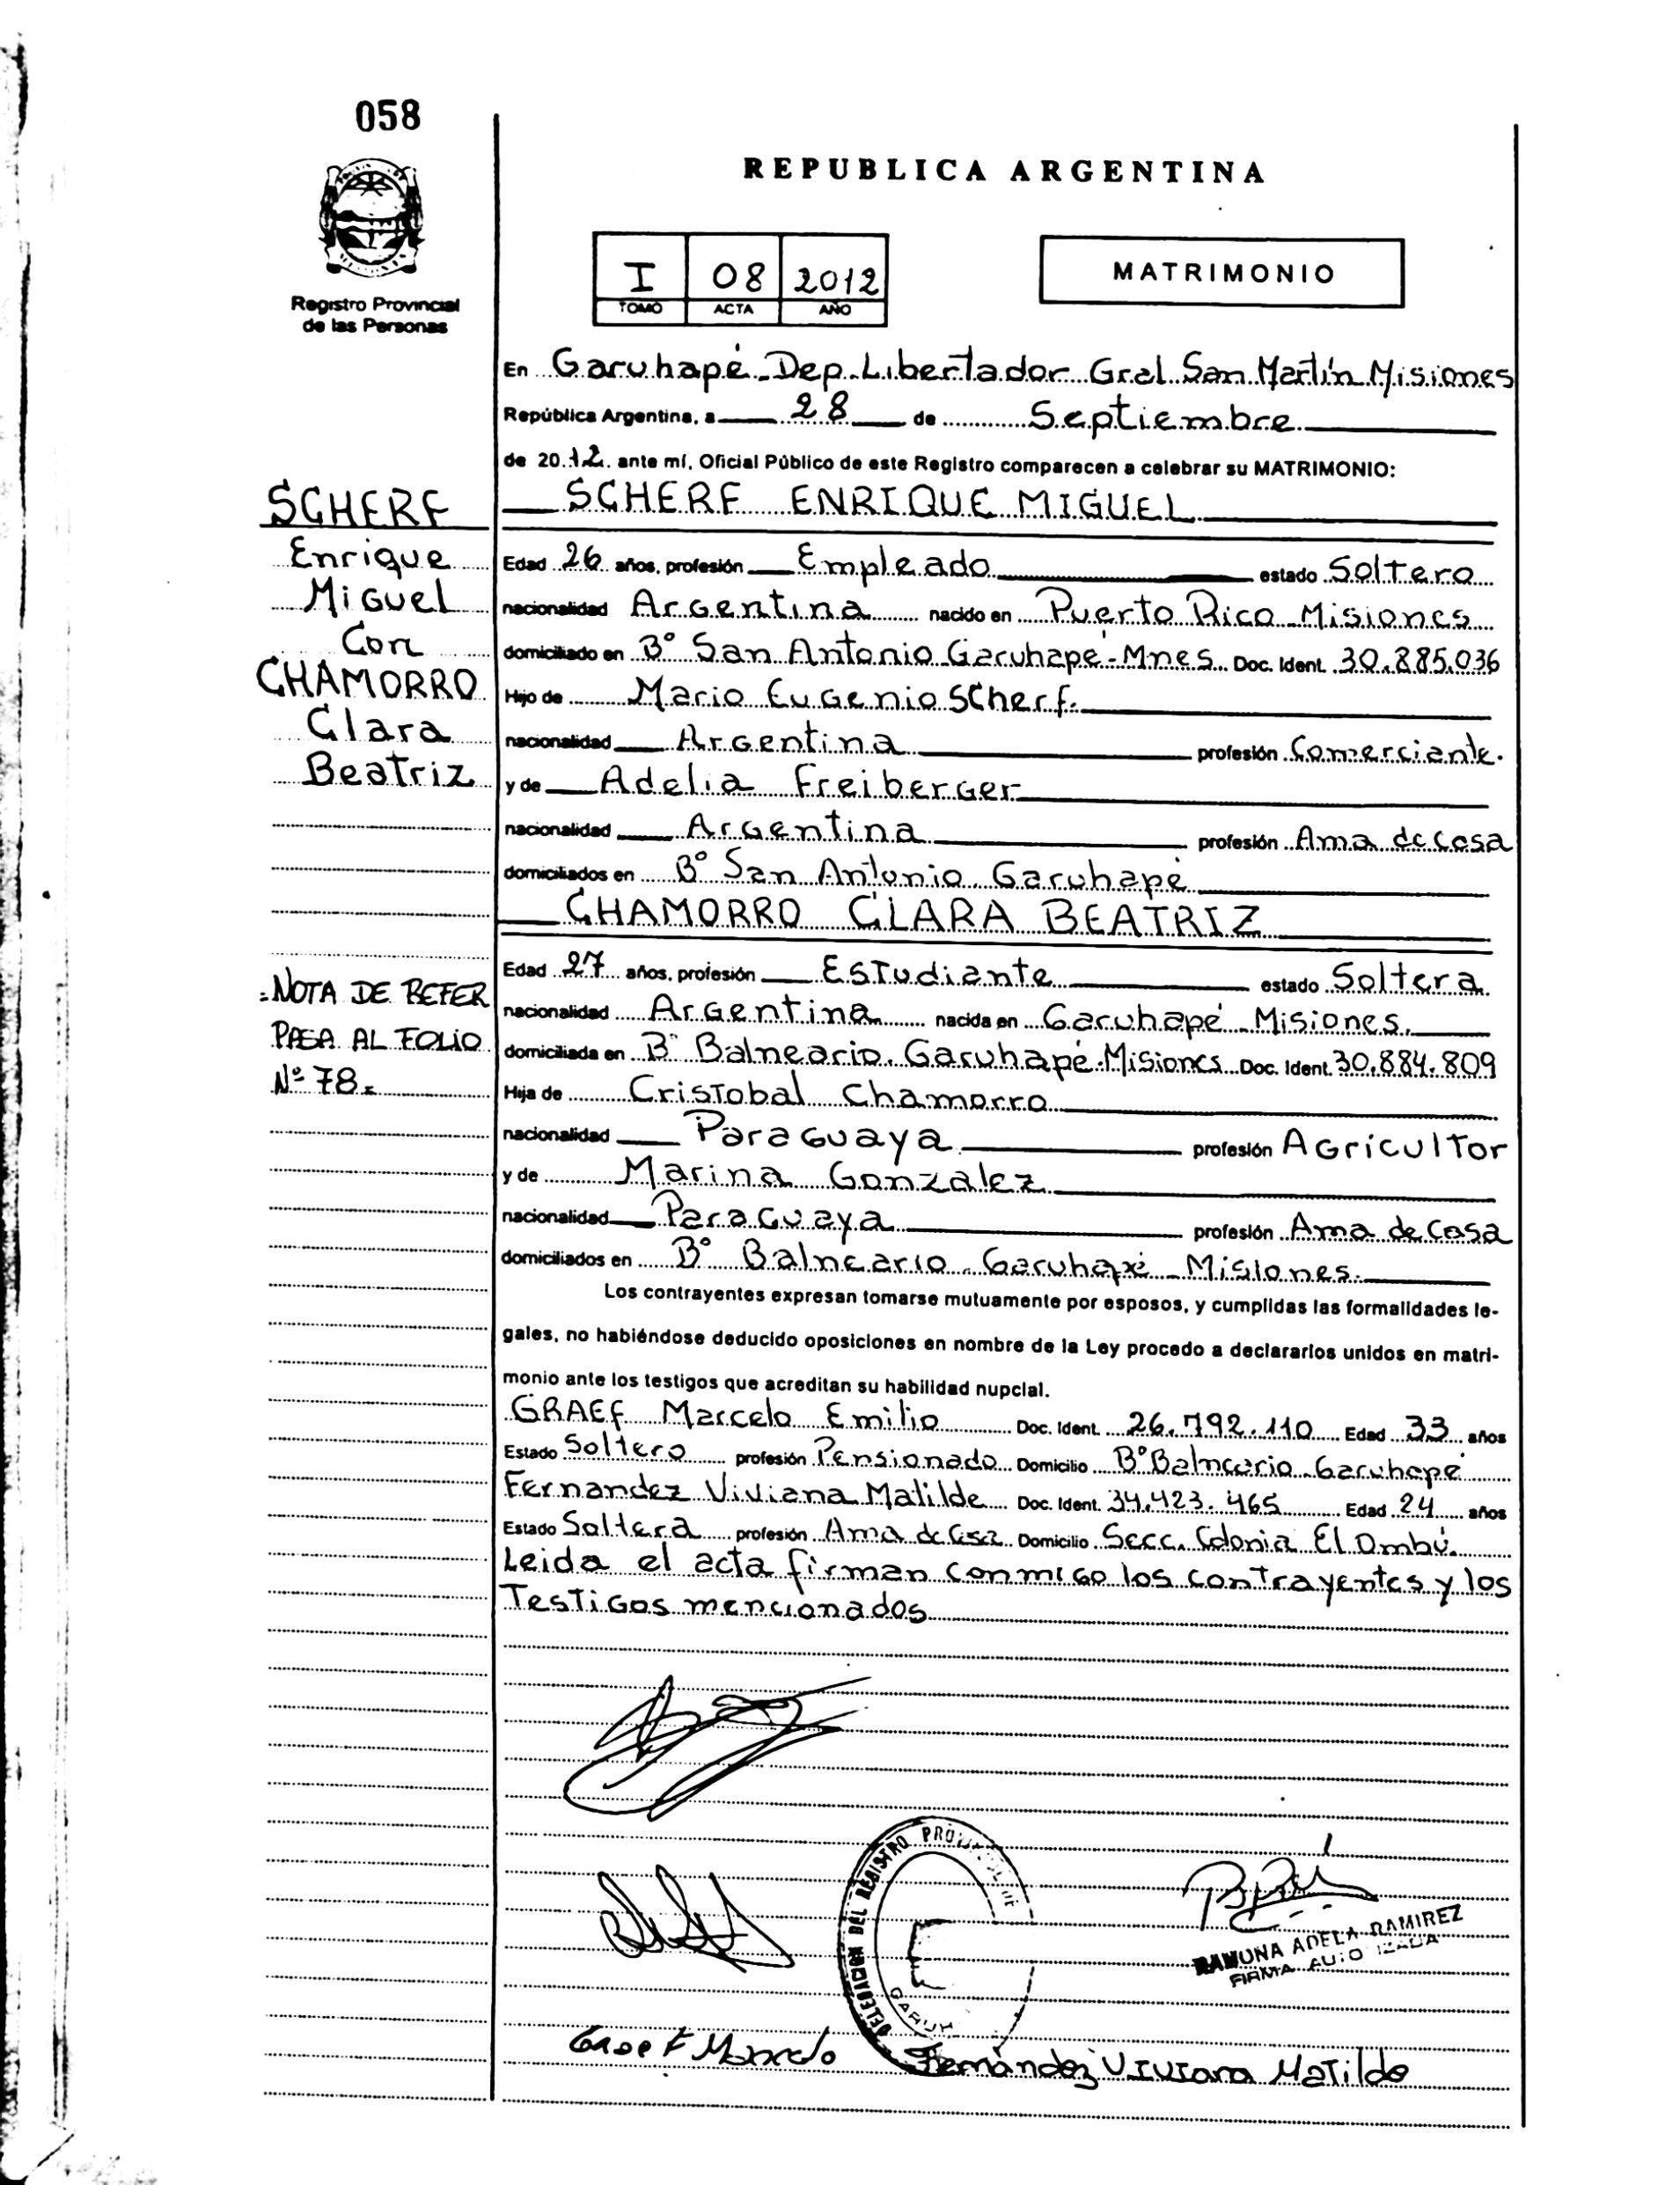 058
REPUBLICA ARGENTINA
Registro Provincial
de las Personas
I 08 2012
TOMO ACTA AÑO
MATRIMONIO
En Garuhapé-Dep-Libertador Gral San Martín Misiones
República Argentina, a 28 de Septiembre
de 2012 ante mí, Oficial Público de este Registro comparecen a celebrar su MATRIMONIO:
SCHERF ENRIQUE MIGUEL
Edad 26 años, profesión Empleado estado Soltero
nacionalidad Argentina nacido en Puerto Rico - Misiones
domiciliado en Bº San Antonio Garuhapé-Mnes Doc. Ident. 30.885.036
Hijo de Mario Eugenio Scherf.
nacionalidad Argentina profesión Comerciante.
y de Adelia Freiberger
nacionalidad Argentina profesión Ama de Casa
domiciliados en Bº San Antonio Garuhapé
CHAMORRO CLARA BEATRIZ
Edad 27 años, profesión Estudiante estado Soltera
nacionalidad Argentina nacida en Garuhapé - Misiones.
domiciliada en Bº Balneario. Garuhapé-Misiones Doc. Ident. 30.884.809
Hija de Cristobal Chamorro
nacionalidad Paraguaya profesión Agricultor
y de Marina Gonzalez
nacionalidad Paraguaya profesión Ama de Casa
domiciliados en Bº Balneario - Garuhapé - Misiones.
Los contrayentes expresan tomarse mutuamente por esposos, y cumplidas las formalidades le-
gales, no habiéndose deducido oposiciones en nombre de la Ley procedo a declararlos unidos en matri-
monio ante los testigos que acreditan su habilidad nupcial.
GRAEF Marcelo Emilio Doc. Ident. 26.792.110 Edad 33 años
Estado Soltero profesión Pensionado Domicilio Bº Balneario-Garuhapé
Fernandez Viviana Matilde Doc. Ident. 34.423.465 Edad 24 años
Estado Soltera profesión Ama de Casa Domicilio Secc. Colonia El Ombú.
Leida el acta firman conmigo los contrayentes y los
Testigos mencionados
SCHERF
Enrique
Miguel
Con
CHAMORRO
Clara
Beatriz
NOTA DE REFER
PASA AL FOLIO
Nº 78.
DELEGACION DEL REGISTRO
GARUH
RAMONA ADELA RAMIREZ
FIRMA
Graef Marcelo
Fernández Viviana Matilde